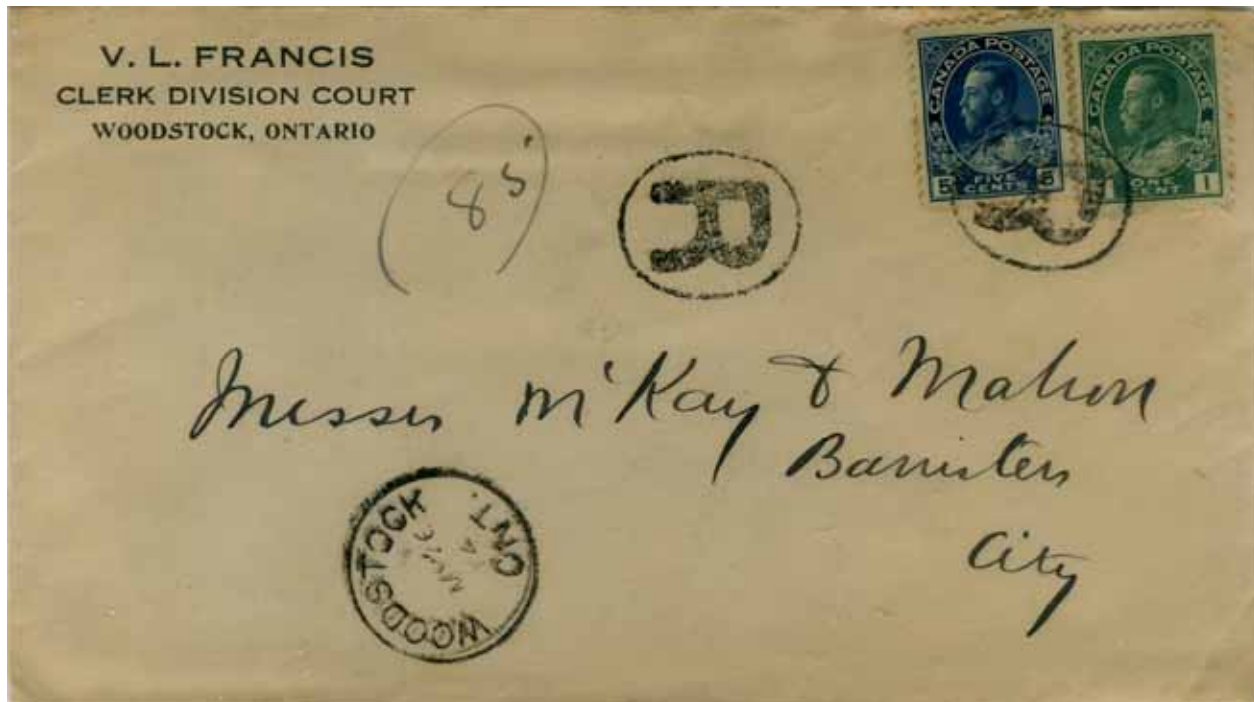 V. L. FRANCIS
CLERK DIVISION COURT
WOODSTOCK, ONTARIO
(85)
R
CANADA POSTAGE
5 FIVE CENTS 5
CANADA POSTAGE
1 ONE CENT 1
R
Messrs McKay & Mahon
Barristers
City
WOODSTOCK
ONT.
14